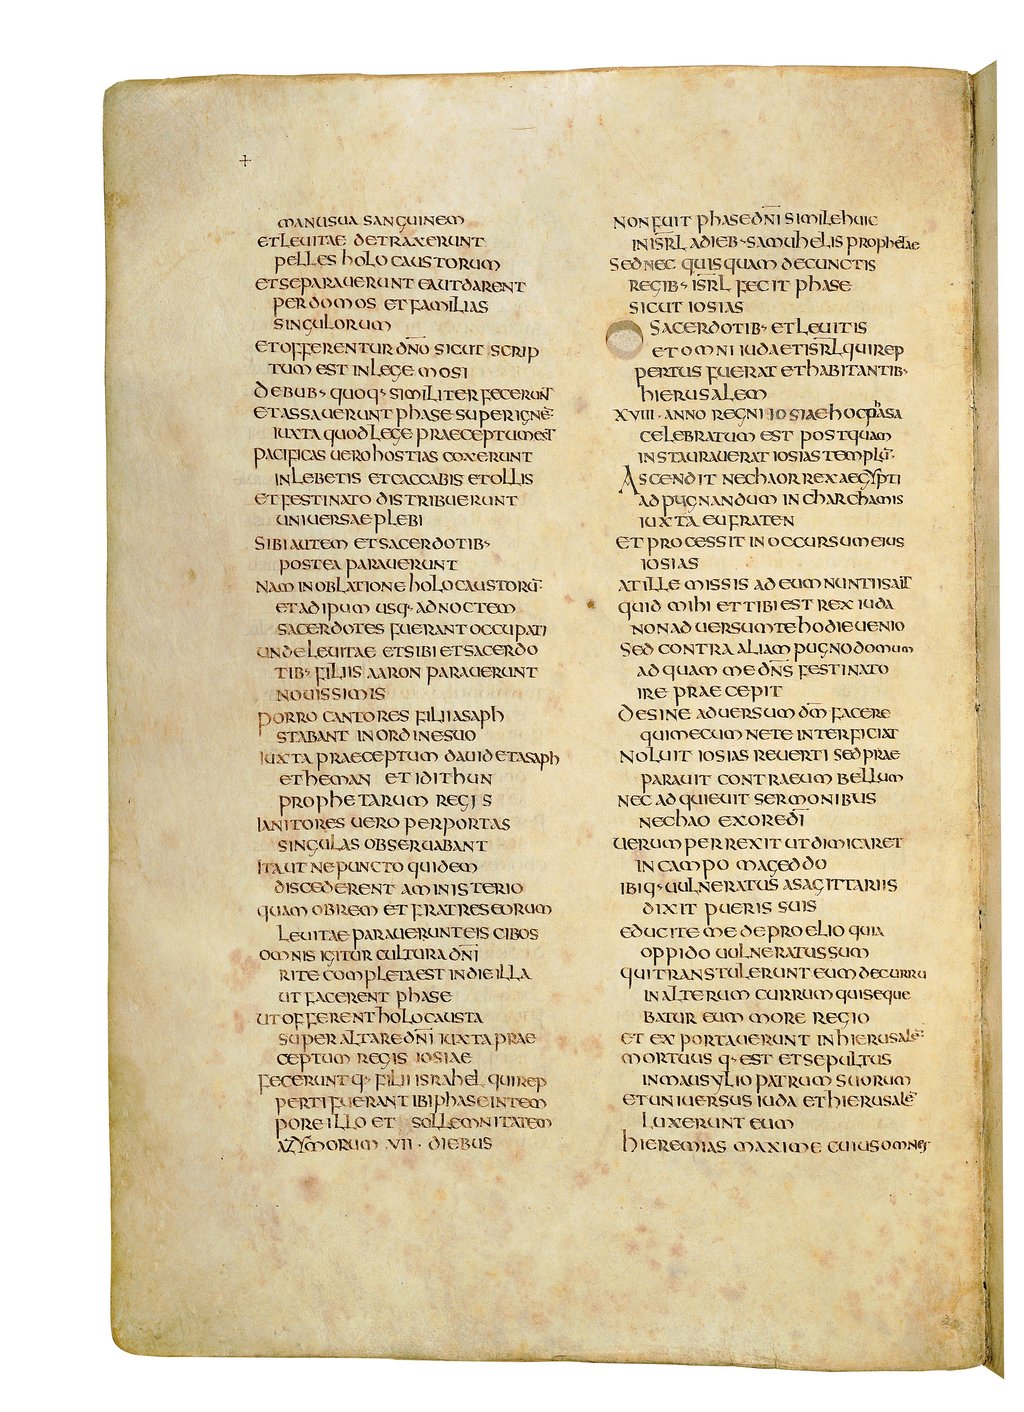 +
manu sua sanguinem
et leuitae detraxerunt
pelles holocaustorum
et separauerunt ea ut darent
per domos et familias
singulorum
et offerentur dn̄o sicut scrip
tum est in lege mosi
de bub· quoq· similiter fecerunt
et assauerunt phase super igne·
iuxta quod lege praeceptum est
pacificas uero hostias coxerunt
in lebetis et caccabis et ollis
et festinato distribuerunt
uniuersae plebi
sibi autem et sacerdotib·
postea parauerunt
nam in oblatione holocaustorū·
et adipum usq· ad noctem
sacerdotes fuerant occupati
unde leuitae et sibi et sacerdo
tib· filiis aaron parauerunt
nouissimis
porro cantores filii asaph
stabant in ordine suo
iuxta praeceptum dauid et asaph
et heman et idithun
prophetarum regis
ianitores uero per portas
singulas obseruabant
ita ut ne puncto quidem
discederent a ministerio
quam obrem et fratres eorum
leuitae parauerunt eis cibos
omnis igitur cultura dn̄i
rite completa est in die illa
ut facerent phase
ut offerent holocausta
super altare dn̄i iuxta prae
ceptum regis iosiae
fecerunt q· filii israhel qui rep
perti fuerant ibi phase in tem
pore illo et sollemnitatem
azymorum ·vii· diebus
non fuit phase dn̄i simile huic
in isr̄l a dieb· samuhelis prophetae
sed nec quisquam de cunctis
regib· isr̄l fecit phase
sicut iosias
sacerdotib· et leuitis
et omni iuda et isr̄l qui rep
pertus fuerat et habitantib·
hierusalem
xviii· anno regni iosiae hoc phasa
celebratum est postquam
instaurauerat iosias templū·
Ascendit nechao rex aegypti
ad pugnandum in charchamis
iuxta eufraten
et processit in occursum eius
iosias
at ille missis ad eum nuntiis ait
quid mihi et tibi est rex iuda
non aduersum te hodie uenio
sed contra aliam pugno domum
ad quam me dn̄s festinato
ire praecepit
desine aduersum dm̄ facere
qui mecum ne te interficiat
noluit iosias reuerti sed prae
parauit contra eum bellum
nec adquieuit sermonibus
nechao ex ore dī
uerum perrexit ut dimicaret
in campo mageddo
ibi q· uulneratus a sagittariis
dixit pueris suis
educite me de proelio quia
oppido uulneratus sum
qui transtulerunt eum de curru
in alterum currum qui seque
batur eum more regio
et exportauerunt in hierusalē·
mortuus q· est et sepultus
in mausylio patrum suorum
et uniuersus iuda et hierusalē·
luxerunt eum
hieremias maxime cuius omnes